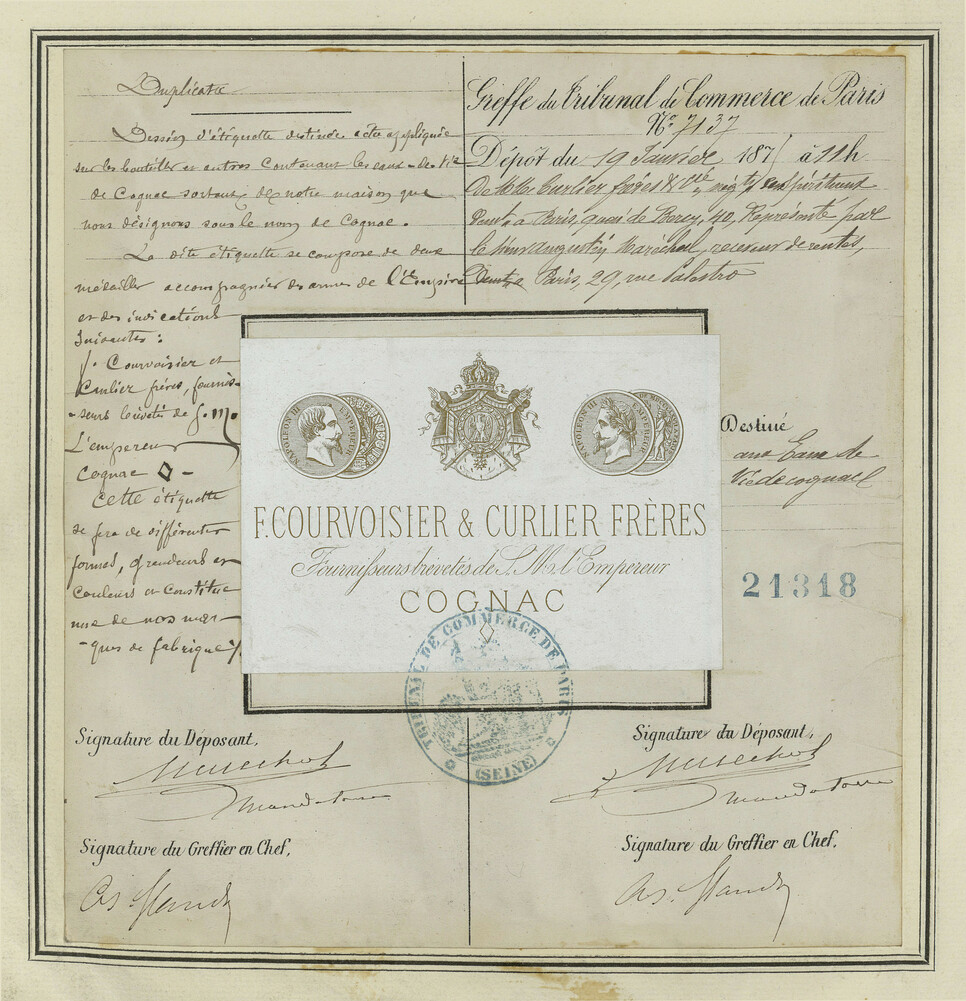 Duplicata
Dessin d'étiquette destinée a etre appliquée
sur les bouteilles et autres contenant les eaux-de-Vie
de Cognac sortant de notre maison que
nous désignons sous le nom de Cognac.
La dite étiquette se compose de deux
médailles accompagnier des armes de l'Empire
et des indications
Suivantes :
F. Courvoisier et
Curlier frères, fournis-
-seurs brévetés de S. M.
L'empereur
Cognac ◇ -
Cette étiquette
se fera de différentes
formes, grandeurs et
couleurs et constitue
une de nos mar-
-ques de fabrique
Greffe du Tribunal de Commerce de Paris
No. 7137
Dépôt du 19 Janvier 187 à 11h
De MM. Curlier frères & Cie,
à Paris, quai de Bercy, 40, Représenté par
le Sieur Augustin Maréchal, receveur de rentes,
Paris, 29, rue Palestro
NAPOLEON III EMPEREUR
NAPOLEON III EMPEREUR
F. COURVOISIER & CURLIER FRÈRES
Fournisseurs brévetés de S. M. l'Empereur
COGNAC
Destiné
aux Eaux de
Vie de cognac
21318
TRIBUNAL DE COMMERCE DE PARIS
(SEINE)
Signature du Déposant,
Marechal
mandataire
Signature du Greffier en Chef,
Signature du Déposant,
Marechal
mandataire
Signature du Greffier en Chef,